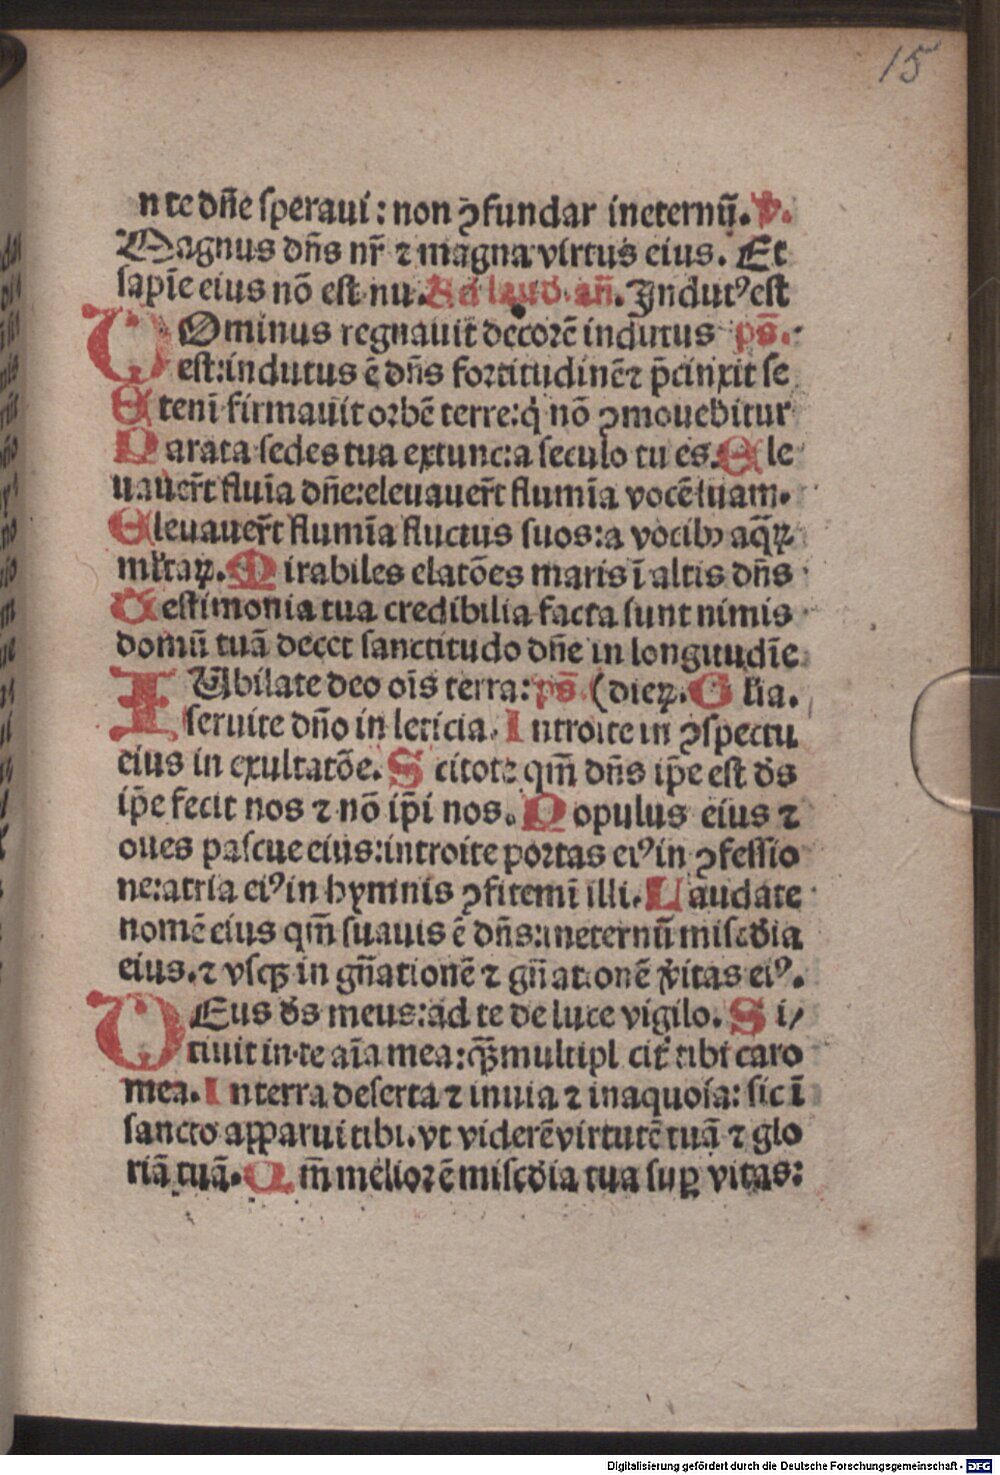 15
n te dn̄e ſperaui : non ꝯfundar ineternū. v.
Magnus dn̄s nr̄ ⁊ magna virtus eius. Et
ſapīe eius nō eſt nu. Ad laud. an̄. Indutꝰ eſt
DOminus regnauit decorē indutus ps̄.
eſt:indutus ē dn̄s fortitudinē⁊ p̄cinxit ſe
Etenī firmauit orbē terre:q̇ nō ꝯmouebitur
Parata ſedes tua extunc:a ſeculo tu es. Ele
uauer̄t fluīa dn̄e:eleuauer̄t flumīa vocē ſuam.
Eleuauer̄t flumīa fluctus ſuos:a vocibꝫ aq̄ꝝ
ml̄taꝝ. Mirabiles elatōes maris ī altis dn̄s
Teſtimonia tua credibilia facta ſunt nimis
domū tuā decet ſanctitudo dn̄e in longitudīe
IUbilate deo oīs terra: ps̄. (dieꝝ. Gl̄ia.
ſeruite dn̄o in leticia. Introite in ꝯſpectu
eius in exultatōe. Scitote qm̄ dn̄s ip̄e eſt ds̄
ip̄e fecit nos ⁊ nō ip̄i nos. Populus eius ⁊
oues paſcue eius:introite portas eiꝰ in ꝯfeſſio
ne:atria eiꝰ in hymnis ꝯfitemī illi. Laudate
nomē eius qm̄ ſuauis ē dn̄s:ineternū miſcd̄ia
eius. ⁊ vſqꝫ in gn̄ationē ⁊ gn̄ationē v̄itas eiꝰ.
DEus ds̄ meus:ad te de luce vigilo. Si/
tiuit in te aīa mea:q̄ꝫ multipl̄ cit̄ tibi caro
mea. In terra deſerta ⁊ inuia ⁊ inaquoſa: ſic ī
ſancto apparui tibi. vt viderē virtutē tuā ⁊ glo
riā tuā. Qm̄ melior ē miſcd̄ia tua ſuꝑ vitas:
Digitalisierung gefördert durch die Deutsche Forschungsgemeinschaft - DFG